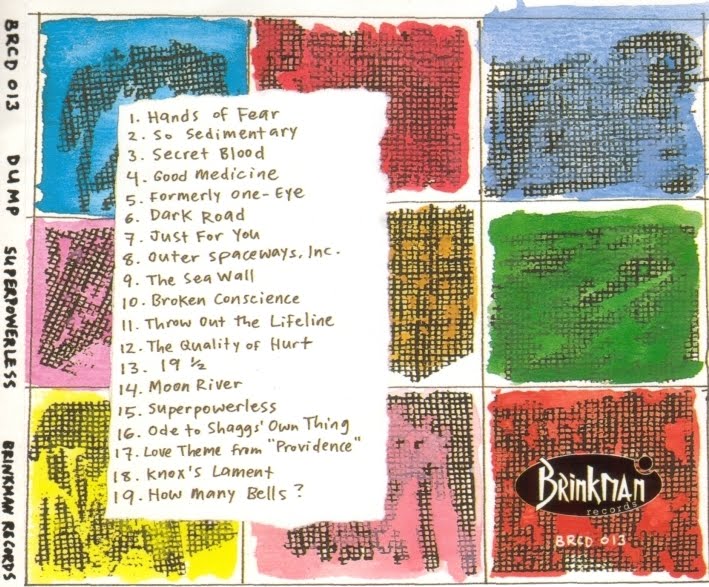 BRCD 013 DUMP SUPERPOWERLESS BRINKMAN RECORDS
1. Hands of Fear
2. So Sedimentary
3. Secret Blood
4. Good Medicine
5. Formerly One-Eye
6. Dark Road
7. Just For You
8. Outer Spaceways, Inc.
9. The Sea Wall
10. Broken Conscience
11. Throw Out the Lifeline
12. The Quality of Hurt
13. 19 ½
14. Moon River
15. Superpowerless
16. Ode to Shaggs' Own Thing
17. Love Theme from "Providence"
18. Knox's Lament
19. How Many Bells?
BRINKMAN
records
BRCD 013